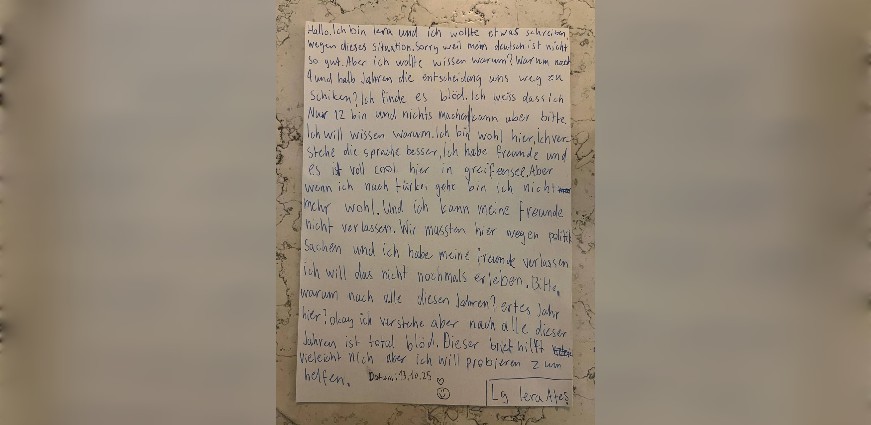 Hallo. Ich bin lera und ich wollte etwas schreiben
wegen dieses situation. Sorry weil mein deutsch ist nicht
so gut. Aber ich wollte wissen warum? Warum nach
4 und halb Jahren die entscheidung uns weg zu
schiken? Ich finde es blöd. Ich weiss dass ich
Nur 12 bin und nichts machen kann aber bitte.
Ich will wissen warum. Ich bin wohl hier, ich ver-
stehe die sprache besser, ich habe freunde und
es ist voll cool hier in greifensee. Aber
wenn ich nach türkei gehe bin ich nicht
mehr wohl. Und ich kann meine Freunde
nicht verlassen. Wir mussten hier wegen politik
Sachen und ich habe meine freunde verlassen
ich will das nicht nochmals erleben. Bitte,
warum nach alle diesen Jahren? ertes Jahr
hier? okay ich verstehe aber nach alle dieser
Jahren ist total blöd. Dieser brief hilft
vieleicht nich aber ich will probieren zum
helfen. Datum: 13.10.25
Lg lera Ateş